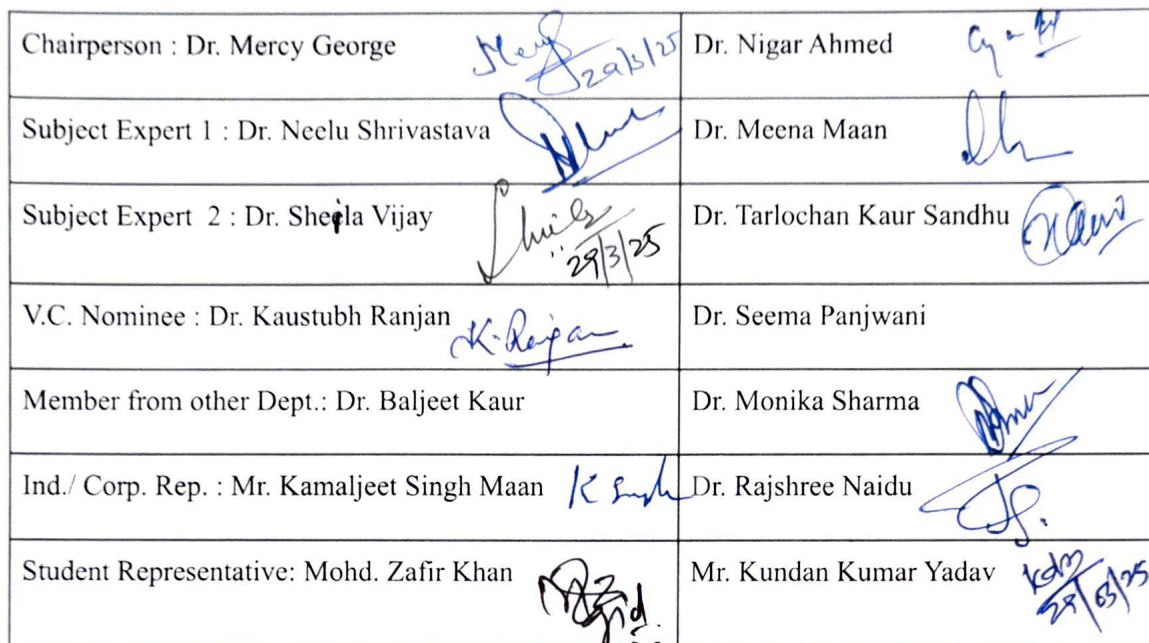 Chairperson : Dr. Mercy George
29/3/25
Dr. Nigar Ahmed
Subject Expert 1 : Dr. Neelu Shrivastava
Dr. Meena Maan
Subject Expert 2 : Dr. Sheela Vijay
29/3/25
Dr. Tarlochan Kaur Sandhu
V.C. Nominee : Dr. Kaustubh Ranjan
K. Ranjan
Dr. Seema Panjwani
Member from other Dept.: Dr. Baljeet Kaur
Dr. Monika Sharma
Ind./ Corp. Rep. : Mr. Kamaljeet Singh Maan
K Singh
Dr. Rajshree Naidu
Student Representative: Mohd. Zafir Khan
Mr. Kundan Kumar Yadav
29/03/25